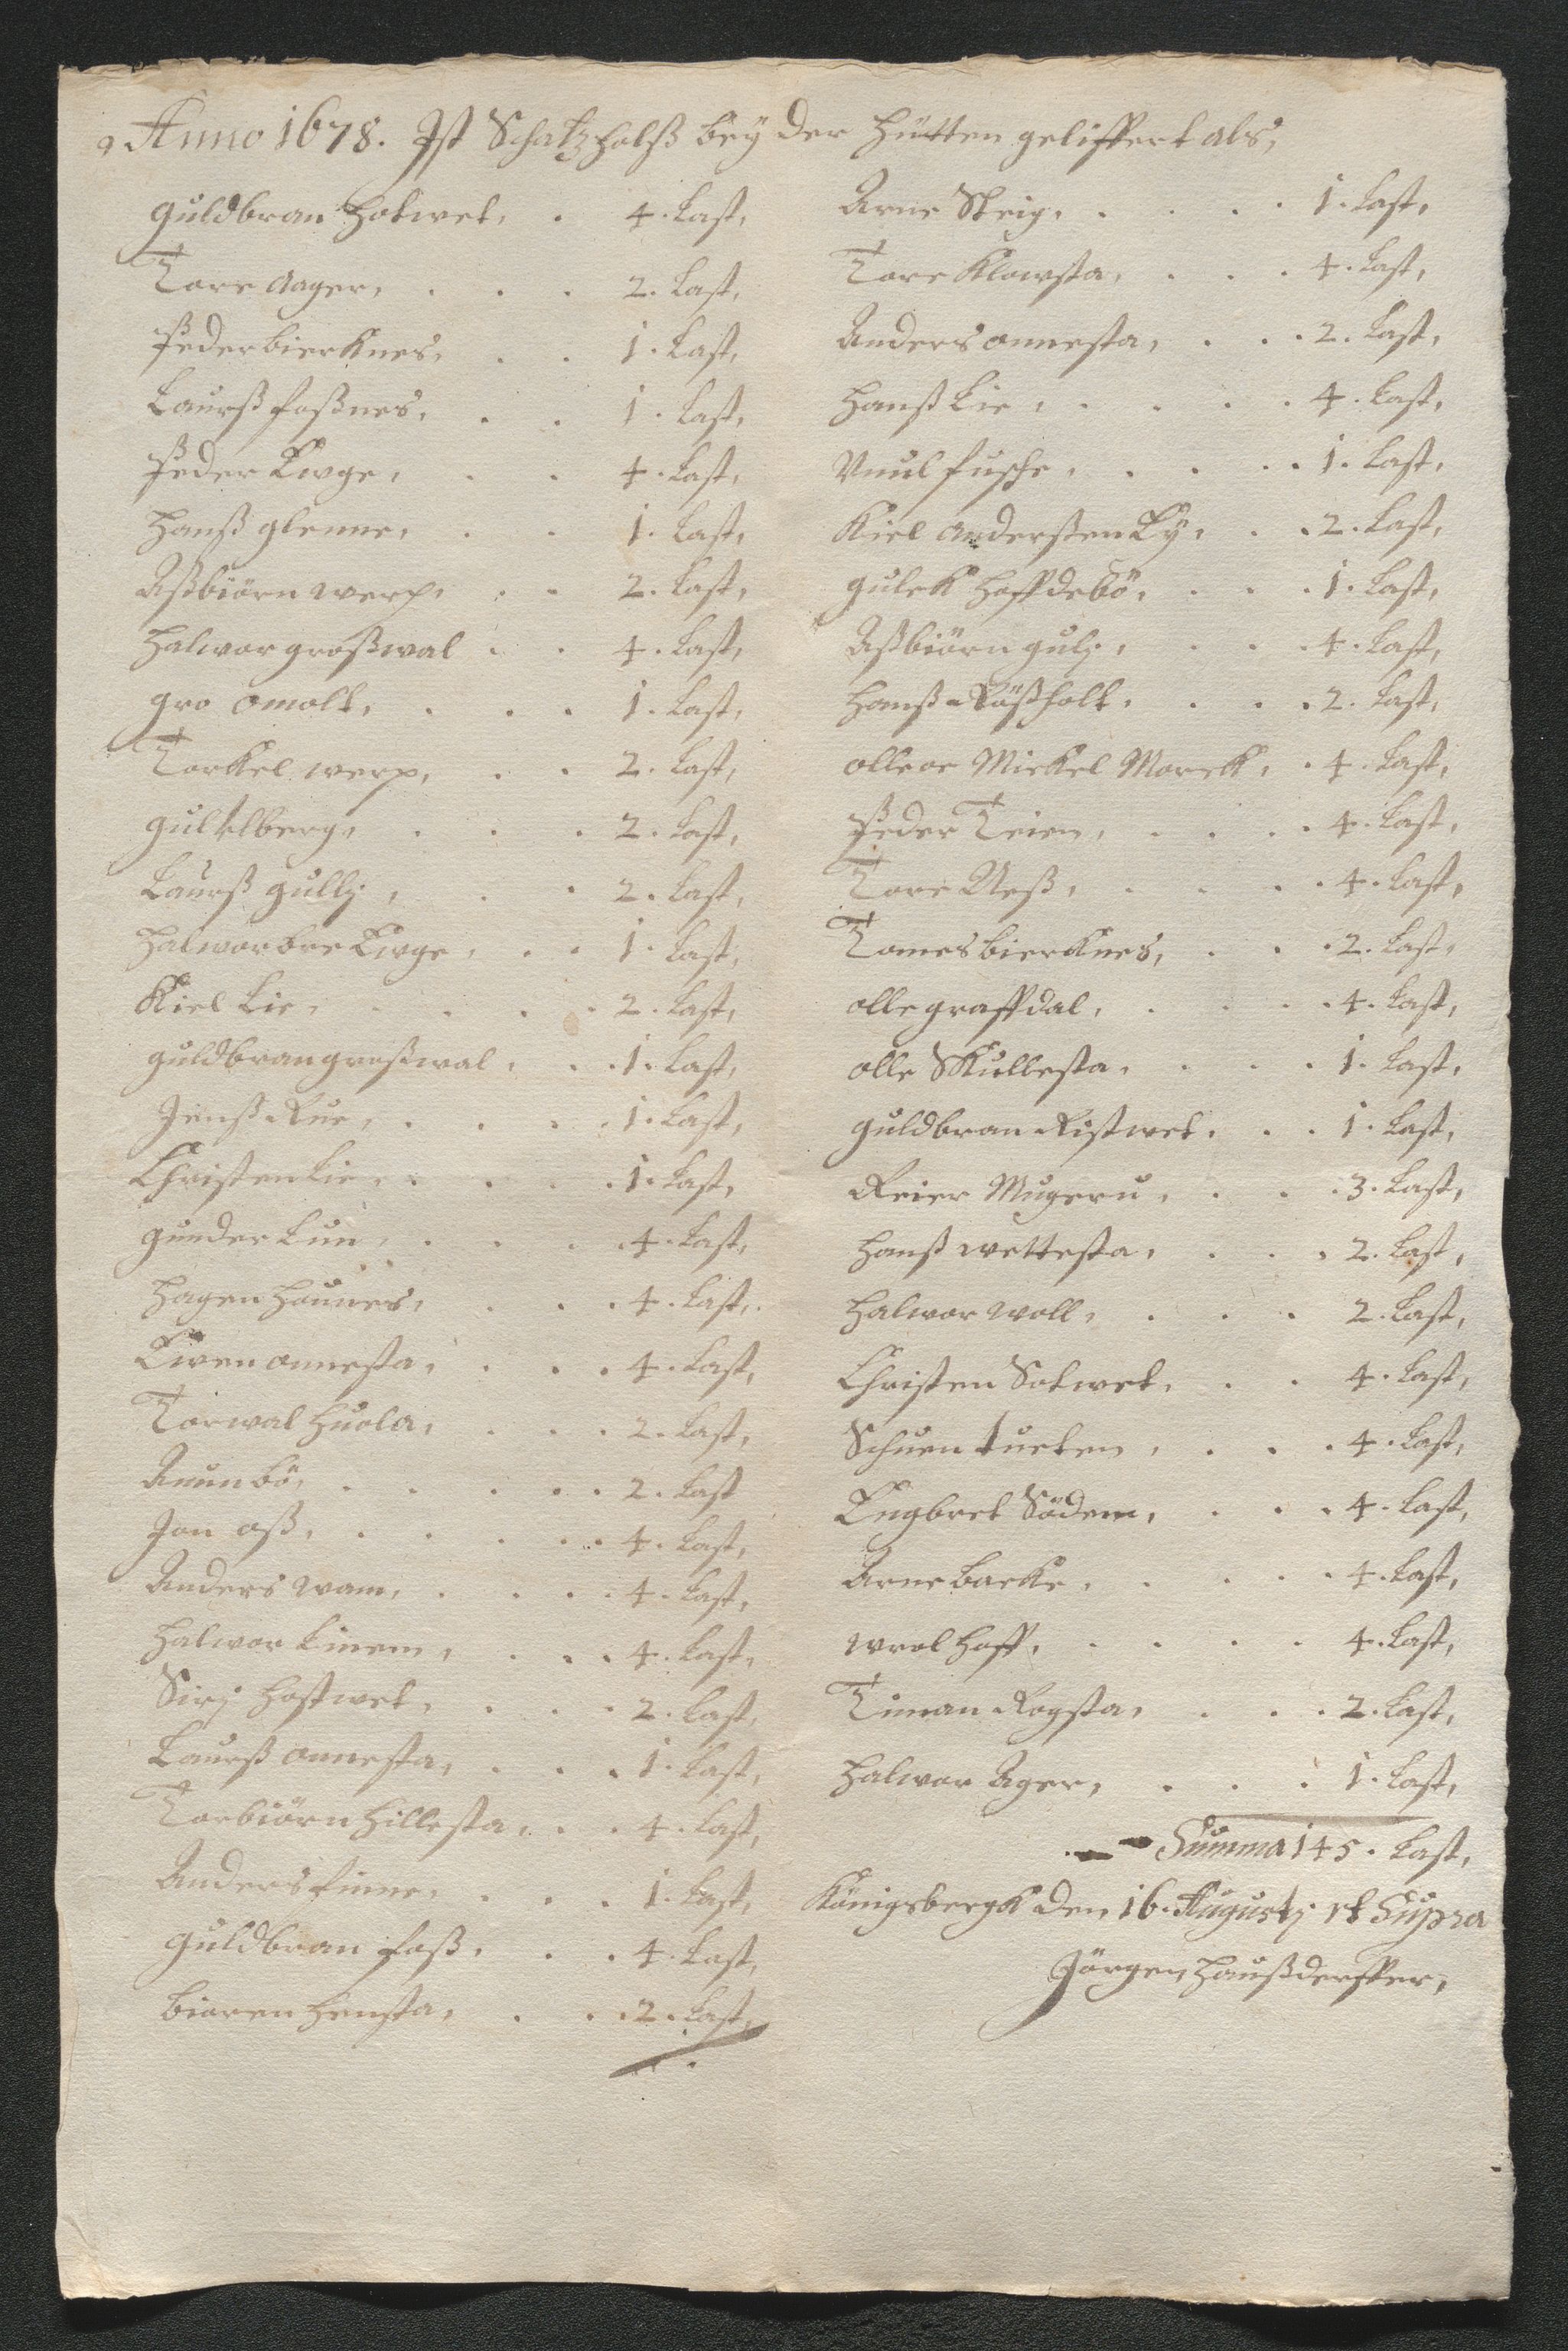 Anno 1678. Ist Schatzholß beÿ der Hütten geliffert als,
Guldbran Hotwet, . 4. Last,
Tore Aager, . . . 2. Last,
Peder bierknes, . . 1. Last,
Laurß foßnes, . . 1. Last,
Peder Ewge, . . 4. Last,
Hanß glenne, . . 1. Last,
Aßbiörn werp, . . 2. Last,
Halwor großwal . . 4. Last,
gro omolt, . . . 1. Last,
Torkel werp, . . 2. Last,
gulelberg, . . . 2. Last,
Laurß gullj, . . 2. Last,
Halwor bre Ewge, . . 1. Last,
Kiel Lie, . . . . 2. Last,
guldbran großwal, . . 1. Last,
Jenß Rue, . . . . 1. Last,
Christen Lie, . . . . 1. Last,
gunder Lun, . . . . 4. Last,
Hagen Hounes, . . . 4. Last,
Ewen onnesta, . . . 4. Last,
Torwal Huola, . . . 2. Last,
Anun bö, . . . . . 2. Last
Jon oß, . . . . . 4. Last,
Anders wam, . . . . 4. Last,
Halwor Linem, . . . 4. Last,
Sirj Hostwet, . . . 2. Last,
Laurß onnesta, . . . 1. Last,
Torbiörn Hillesta, . . 4. Last,
Anders finne, . . . 1. Last,
Guldbran foß, . . . 4. Last,
bioren Hensta, . . . 2. Last,
Arne Steig, . . . . 1. Last,
Tore Klowsta, . . . 4. Last,
Anders onnesta, . . . 2. Last,
Hanß Lie, . . . . . 4. Last,
fusche, . . . . 1. Last,
Kiel Anderßen Bÿ, . . 2. Last,
gulek Hoffdebö, . . . 1. Last,
Aßbiörn gulj, . . . 4. Last,
Hanß Rößholt, . . . 2. Last,
olle oc Mickel Morck, . 4. Last,
Peder Teien, . . . . 4. Last,
Tore Neß, . . . . 4. Last,
Tomes bierknes, . . . 2. Last,
olle graffdal, . . . . 4. Last,
olle Skullesta, . . . 1. Last,
guldbran Ristwet, . . . 1. Last,
Reier Mugeru, . . . 3. Last,
Hanß wettesta, . . . 2. Last,
Halwor woll, . . . 2. Last,
Christen Sotwet, . . . 4. Last,
Schuen tueten, . . . 4. Last,
Engbret Södem, . . . 4. Last,
Arne backe, . . . . 4. Last,
wrol Hoff, . . . . 4. Last,
Timan Rogsta, . . . 2. Last,
Halwor Ager, . . . 1. Last,
Summa 145. Last,
Königsbergk den 16. Augustj ut Supra
Jörgen Haußdörffer,